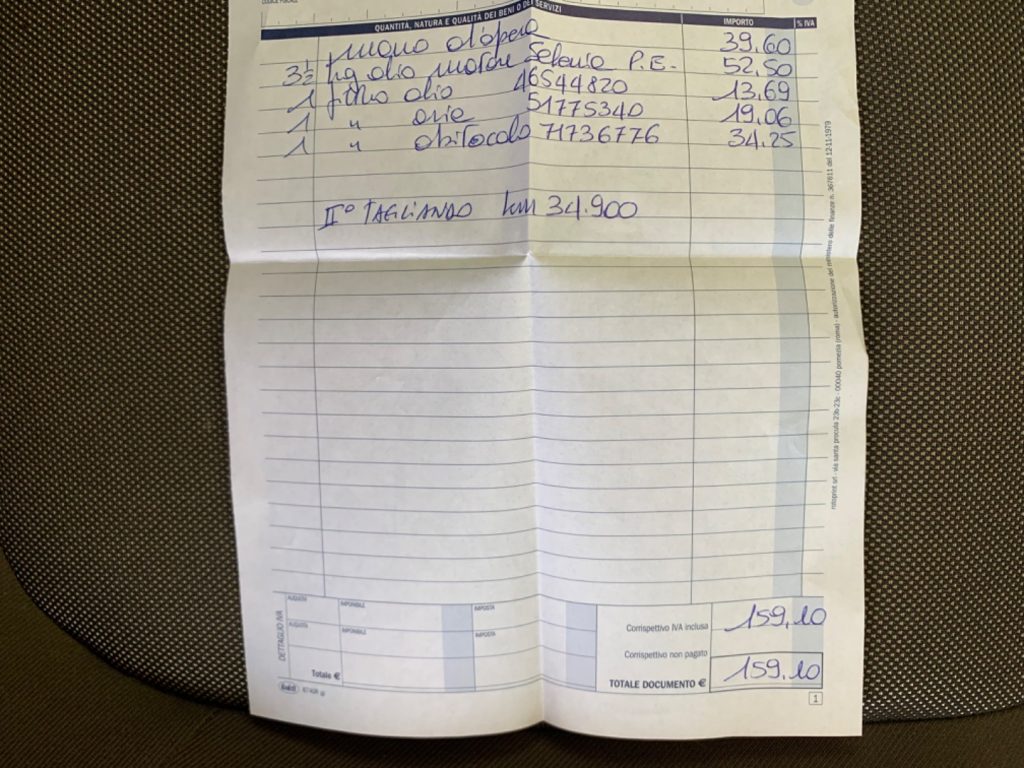 CODICE FISCALE
QUANTITÀ, NATURA E QUALITÀ DEI BENI O DEI SERVIZI IMPORTO % IVA
mano d'opera 39.60
3½ kg olio motore Selenia P.E. 52.50
1 filtro olio 46544820 13.69
1 " aria 51775340 19.06
1 " abitacolo 71736776 34.25
II° TAGLIANDO km 34.900
rotoprint srl - via santa procula 23b-23c - 00040 pomezia (roma) - autorizzazione del ministero delle finanze n. 367611 del 12-11-1979
DETTAGLIO IVA
ALIQUOTA IMPONIBILE IMPOSTA
ALIQUOTA IMPONIBILE IMPOSTA
Totale €
Corrispettivo IVA inclusa 159,10
Corrispettivo non pagato
TOTALE DOCUMENTO € 159.10
1